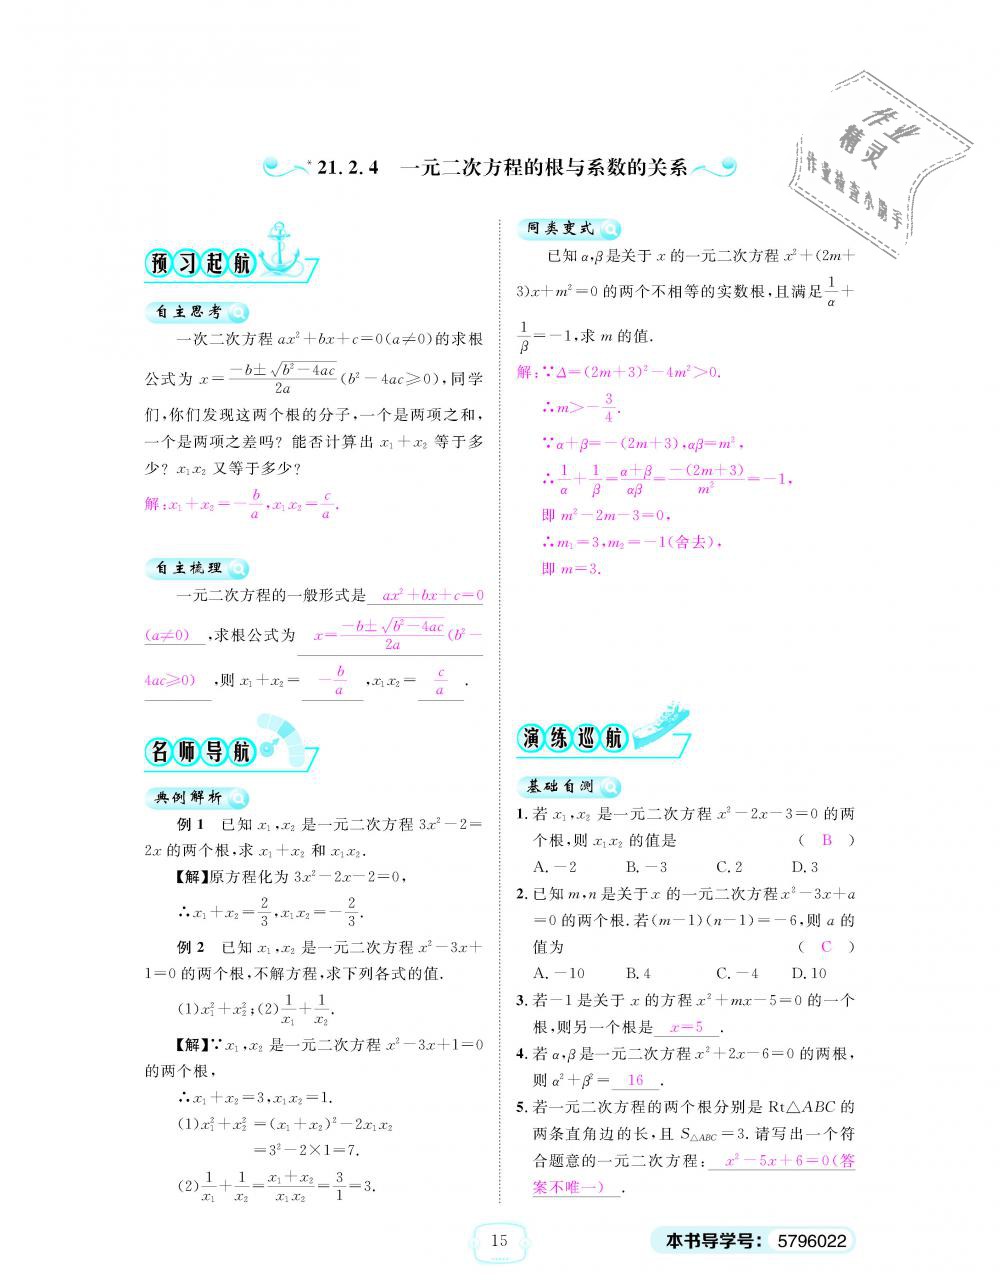 作业
精灵
作业检查小助手
*21.2.4 一元二次方程的根与系数的关系
预习起航
自主思考
一次二次方程 ax²+bx+c=0(a≠0)的求根
公式为 x=(-b±√(b²-4ac))/(2a)(b²-4ac⩾0),同学
们,你们发现这两个根的分子,一个是两项之和,
一个是两项之差吗? 能否计算出 x₁+x₂ 等于多
少? x₁x₂ 又等于多少?
解:x₁+x₂=-b/a,x₁x₂=c/a.
自主梳理
一元二次方程的一般形式是 ax²+bx+c=0
(a≠0) ,求根公式为 x=(-b±√(b²-4ac))/(2a)(b²-
4ac⩾0) ,则 x₁+x₂= -b/a ,x₁x₂= c/a .
名师导航
典例解析
例1 已知 x₁,x₂ 是一元二次方程 3x²-2=
2x 的两个根,求 x₁+x₂ 和 x₁x₂.
【解】原方程化为 3x²-2x-2=0,
∴x₁+x₂=2/3,x₁x₂=-2/3.
例2 已知 x₁,x₂ 是一元二次方程 x²-3x+
1=0 的两个根,不解方程,求下列各式的值.
(1)x₁²+x₂²;(2)1/x₁+1/x₂.
【解】∵x₁,x₂ 是一元二次方程 x²-3x+1=0
的两个根,
∴x₁+x₂=3,x₁x₂=1.
(1)x₁²+x₂²=(x₁+x₂)²-2x₁x₂
=3²-2×1=7.
(2)1/x₁+1/x₂=(x₁+x₂)/(x₁x₂)=3/1=3.
同类变式
已知 α,β是关于 x 的一元二次方程 x²+(2m+
3)x+m²=0 的两个不相等的实数根,且满足1/α+
1/β=-1,求 m 的值.
解:∵Δ=(2m+3)²-4m²>0.
∴m>-3/4.
∵α+β=-(2m+3),αβ=m²,
∴1/α+1/β=(α+β)/(αβ)=-(2m+3)/m²=-1,
即 m²-2m-3=0,
∴m₁=3,m₂=-1(舍去),
即 m=3.
演练巡航
基础自测
1. 若 x₁,x₂ 是一元二次方程 x²-2x-3=0 的两
个根,则 x₁x₂ 的值是 ( B )
A. -2 B. -3 C. 2 D. 3
2. 已知 m,n 是关于 x 的一元二次方程 x²-3x+a
=0 的两个根. 若(m-1)(n-1)=-6,则 a 的
值为 ( C )
A. -10 B. 4 C. -4 D. 10
3. 若-1 是关于 x 的方程 x²+mx-5=0 的一个
根,则另一个根是 x=5 .
4. 若 α,β是一元二次方程 x²+2x-6=0 的两根,
则 α²+β²= 16 .
5. 若一元二次方程的两个根分别是 Rt△ABC 的
两条直角边的长,且 S△ABC=3. 请写出一个符
合题意的一元二次方程: x²-5x+6=0(答
案不唯一) .
15
本书导学号: 5796022